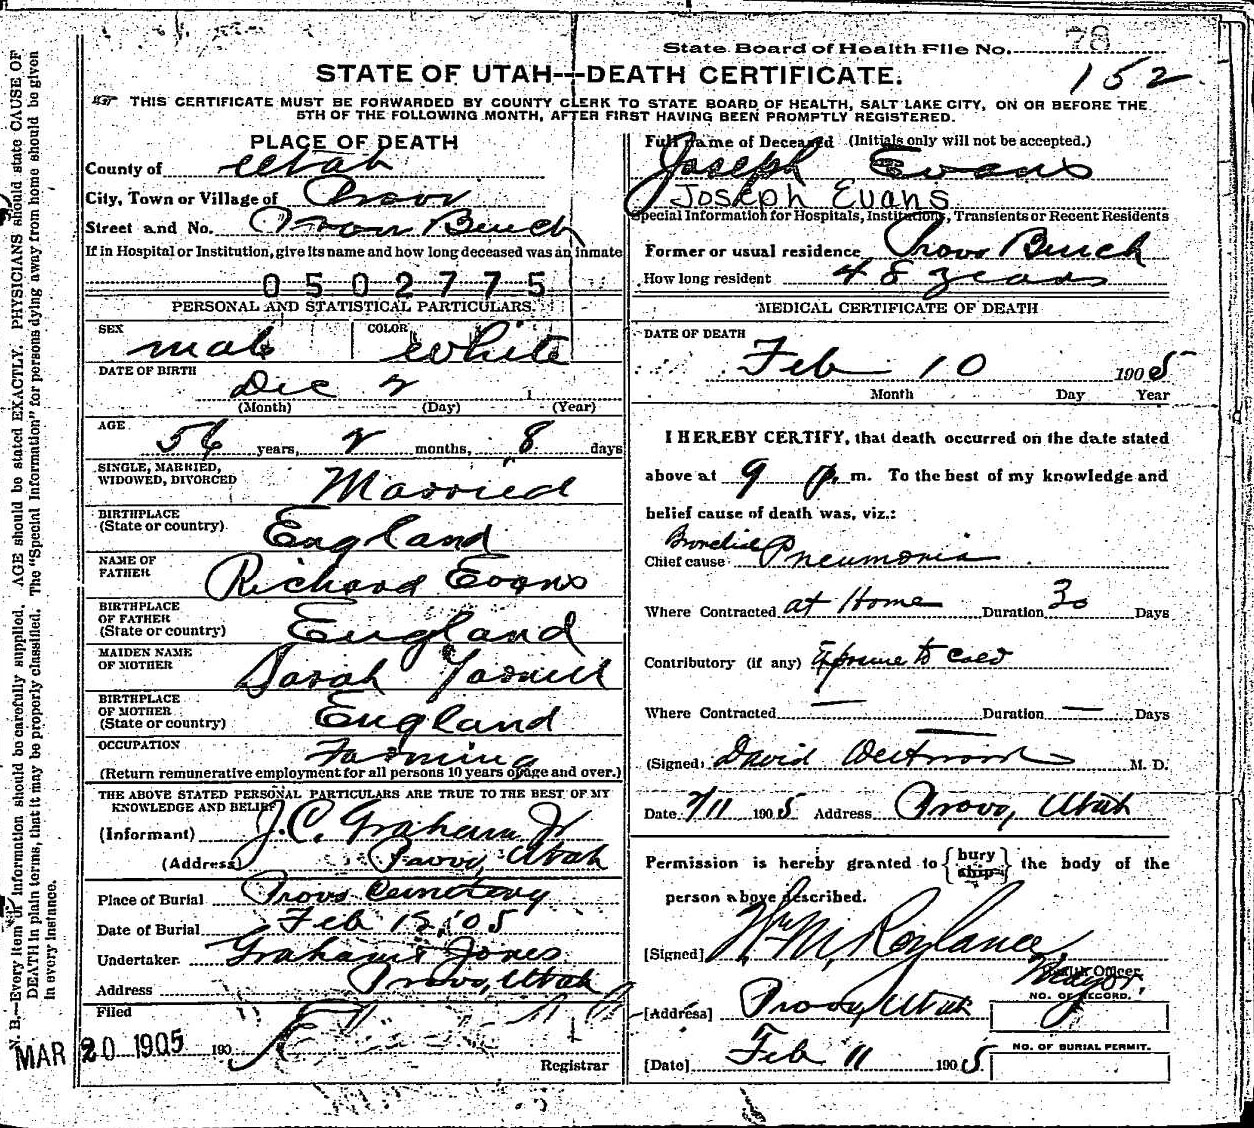 State Board of Health File No. 78
152
STATE OF UTAH—DEATH CERTIFICATE.
THIS CERTIFICATE MUST BE FORWARDED BY COUNTY CLERK TO STATE BOARD OF HEALTH, SALT LAKE CITY, ON OR BEFORE THE
5TH OF THE FOLLOWING MONTH, AFTER FIRST HAVING BEEN PROMPTLY REGISTERED.
PLACE OF DEATH
County of Utah
City, Town or Village of Provo
Street and No. Provo Bench
If in Hospital or Institution, give its name and how long deceased was an inmate
0502775
PERSONAL AND STATISTICAL PARTICULARS.
SEX male COLOR White
DATE OF BIRTH Dec 2
(Month) (Day) (Year)
AGE 56 years, 2 months, 8 days
SINGLE, MARRIED,
WIDOWED, DIVORCED Married
BIRTHPLACE
(State or country) England
NAME OF
FATHER Richard Evans
BIRTHPLACE
OF FATHER
(State or country) England
MAIDEN NAME
OF MOTHER Sarah
BIRTHPLACE
OF MOTHER
(State or country) England
OCCUPATION Farming
(Return remunerative employment for all persons 10 years of age and over.)
THE ABOVE STATED PERSONAL PARTICULARS ARE TRUE TO THE BEST OF MY
KNOWLEDGE AND BELIEF
(Informant) J.C. Graham Jr
(Address) Provo, Utah
Place of Burial Provo Cemetery
Date of Burial Feb '05
Undertaker Graham Jones
Address Provo, Utah
Filed
MAR 20 1905 190
Registrar
Full name of Deceased (Initials only will not be accepted.)
Joseph Evans
Joseph Evans
Special Information for Hospitals, Institutions, Transients or Recent Residents
Former or usual residence Provo Bench
How long resident 48 years
MEDICAL CERTIFICATE OF DEATH
DATE OF DEATH
Feb 10 1905
Month Day Year
I HEREBY CERTIFY, that death occurred on the date stated
above at 9 p. m. To the best of my knowledge and
belief cause of death was, viz.:
Chief cause Bronchial Pneumonia
Where Contracted at Home Duration 30 Days
Contributory (if any) Exposure to cold
Where Contracted — Duration — Days
(Signed) David Westwood M. D.
Date 2/11 1905 Address Provo, Utah
Permission is hereby granted to {bury
ship} the body of the
person above described.
[Signed] Wm M. Roylance
Health Officer
Mayor.
[Address] Provo, Utah
NO. OF RECORD.
[Date] Feb 11 1905
NO. OF BURIAL PERMIT.
N. B.—Every item of information should be carefully supplied. AGE should be stated EXACTLY. PHYSICIANS should state CAUSE OF
DEATH in plain terms, that it may be properly classified. The "Special Information" for persons dying away from home should be given
in every instance.